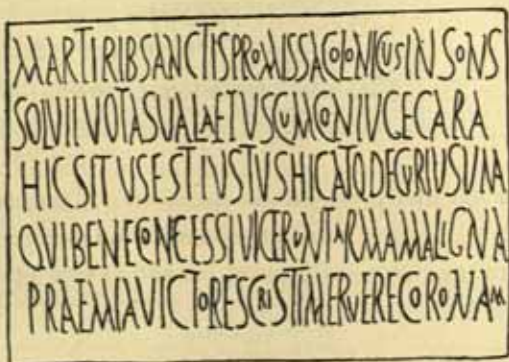 MARTIRIBSANCTISPROMISSACOLONICUSINSONS
SOLVITVOTASVALAETVSCVMCONIVGECARA
HICSITVSESTIVSTVSHICATQDECVRIVSVNA
QVIBENECONFESSIVICERVNTARMAMALIGNA
PRAEMIAVICTORESCRISTIMERVERECORONAM